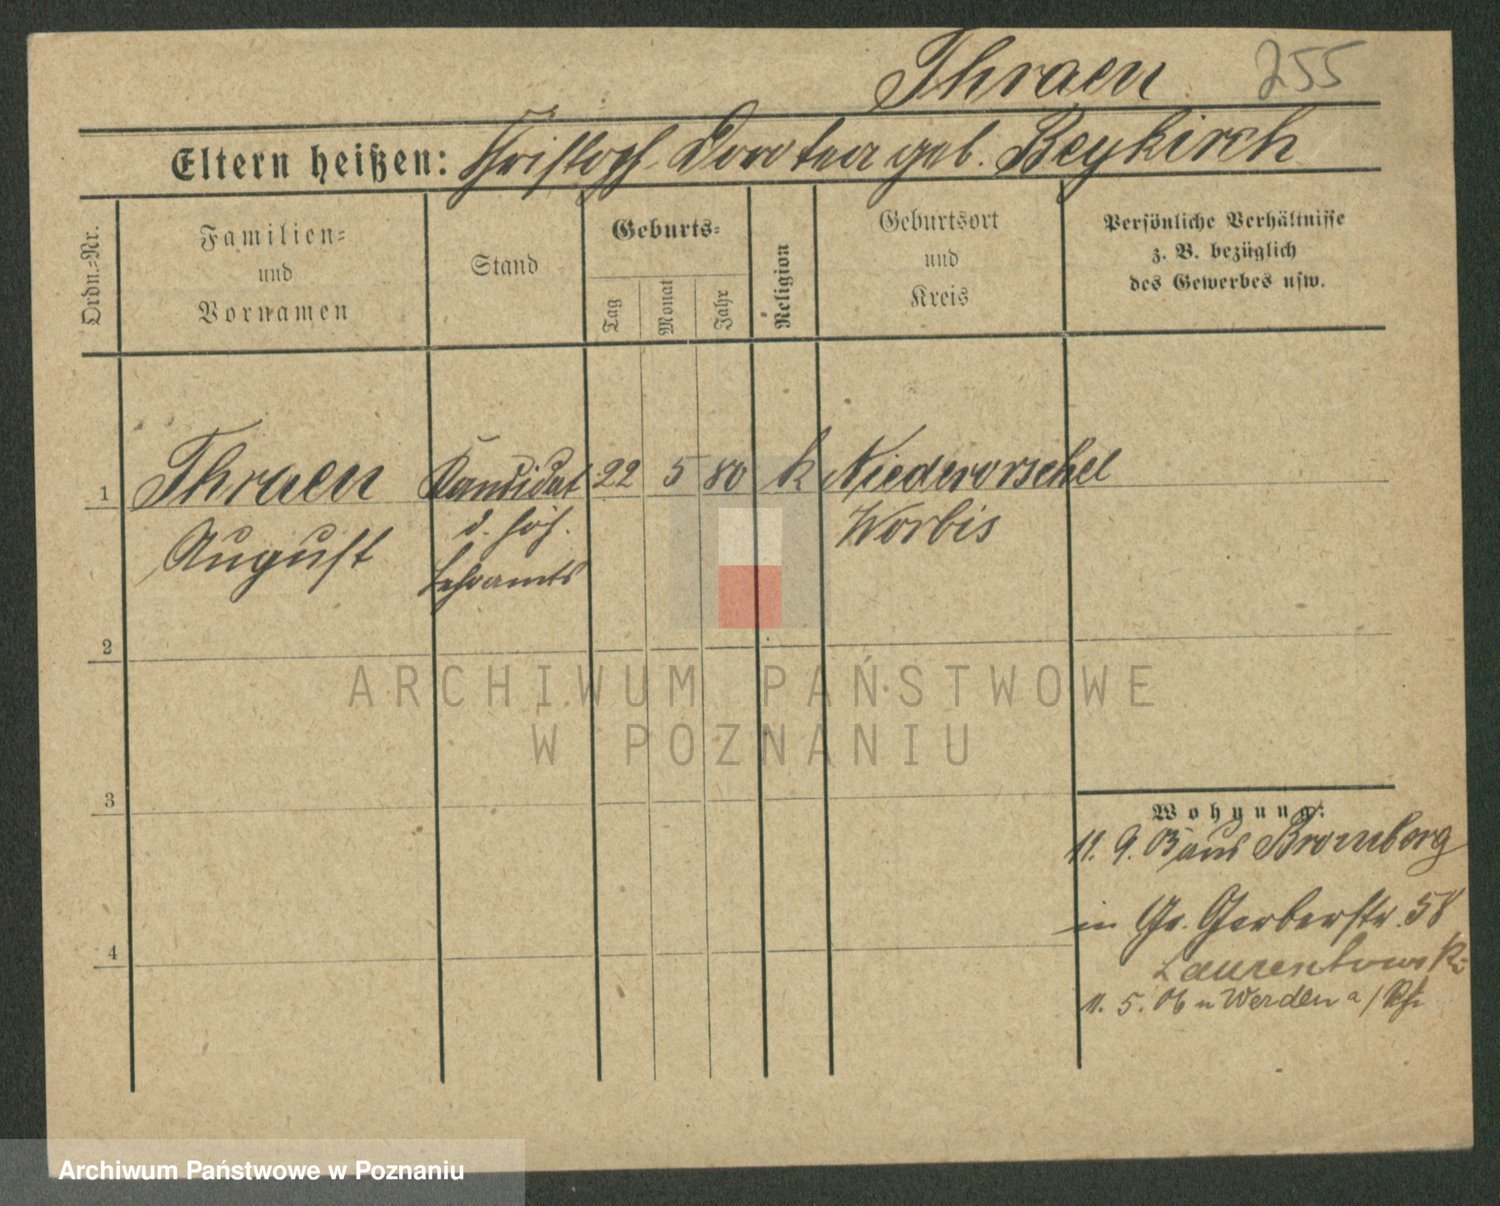 Thraen 255
Eltern heißen: Christoph Dorotea geb. Beykirch
Ordn.-Nr.
Familien-
und
Vornamen
Stand
Geburts-
Tag
Monat
Jahr
Religion
Geburtsort
und
Kreis
Persönliche Verhältnisse
z. B. bezüglich
des Gewerbes usw.
1 Thraen Kandidat 22 5 80 k Niederorschel
August d. höh. Worbis
Lehramts
2
ARCHIWUM PAŃSTWOWE
W POZNANIU
3
Wohnung:
11. 9. 05 aus Bromberg
in Gr. Gerberstr. 58
Laurentowski
4
11. 5. 06 n Werden a/
Archiwum Państwowe w Poznaniu